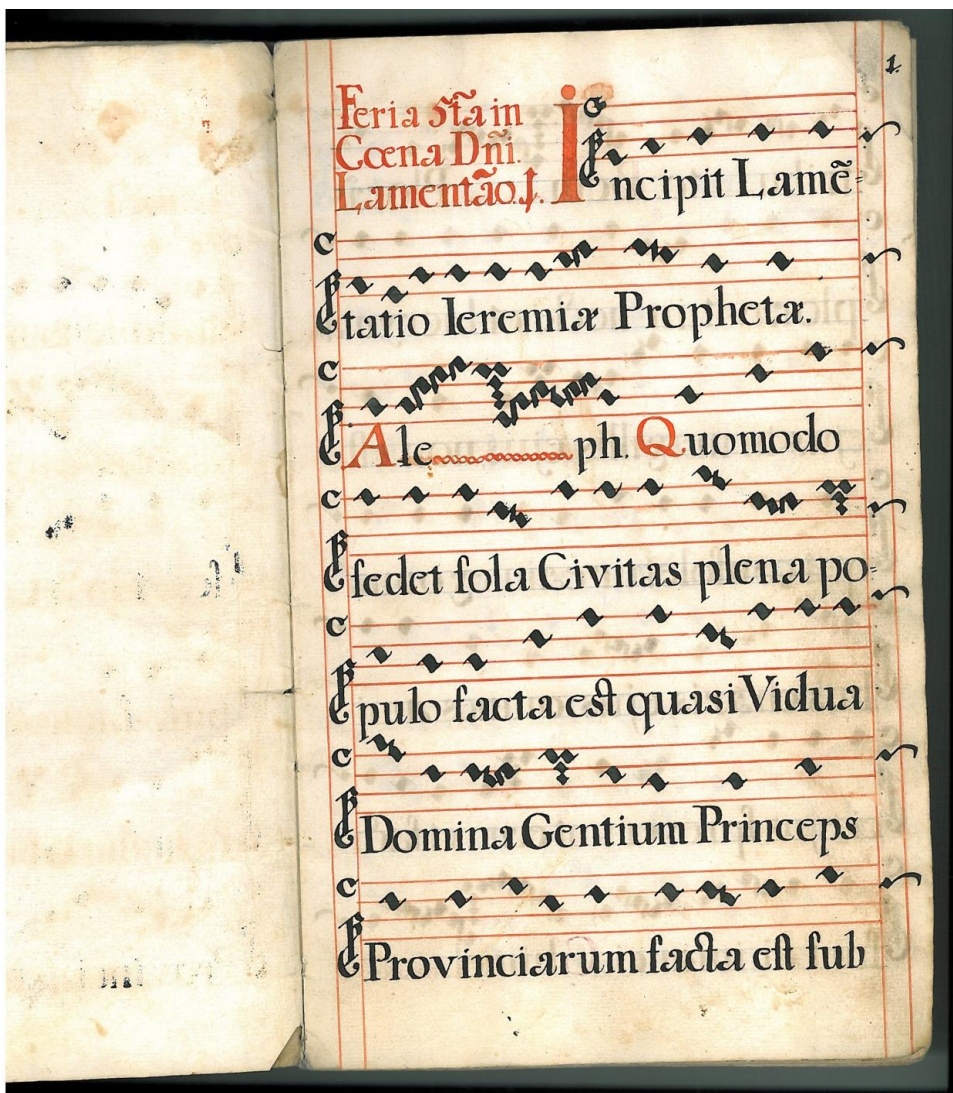 1.
Feria 5ta in
Cœna Dñi.
Lamentão. I.
Incipit Lamē=
tatio Ieremiæ Prophetæ.
Aleph. Quomodo
ſedet ſola Civitas plena po=
pulo facta eſt quasi Vidua
Domina Gentium Princeps
Provinciarum facta eſt ſub